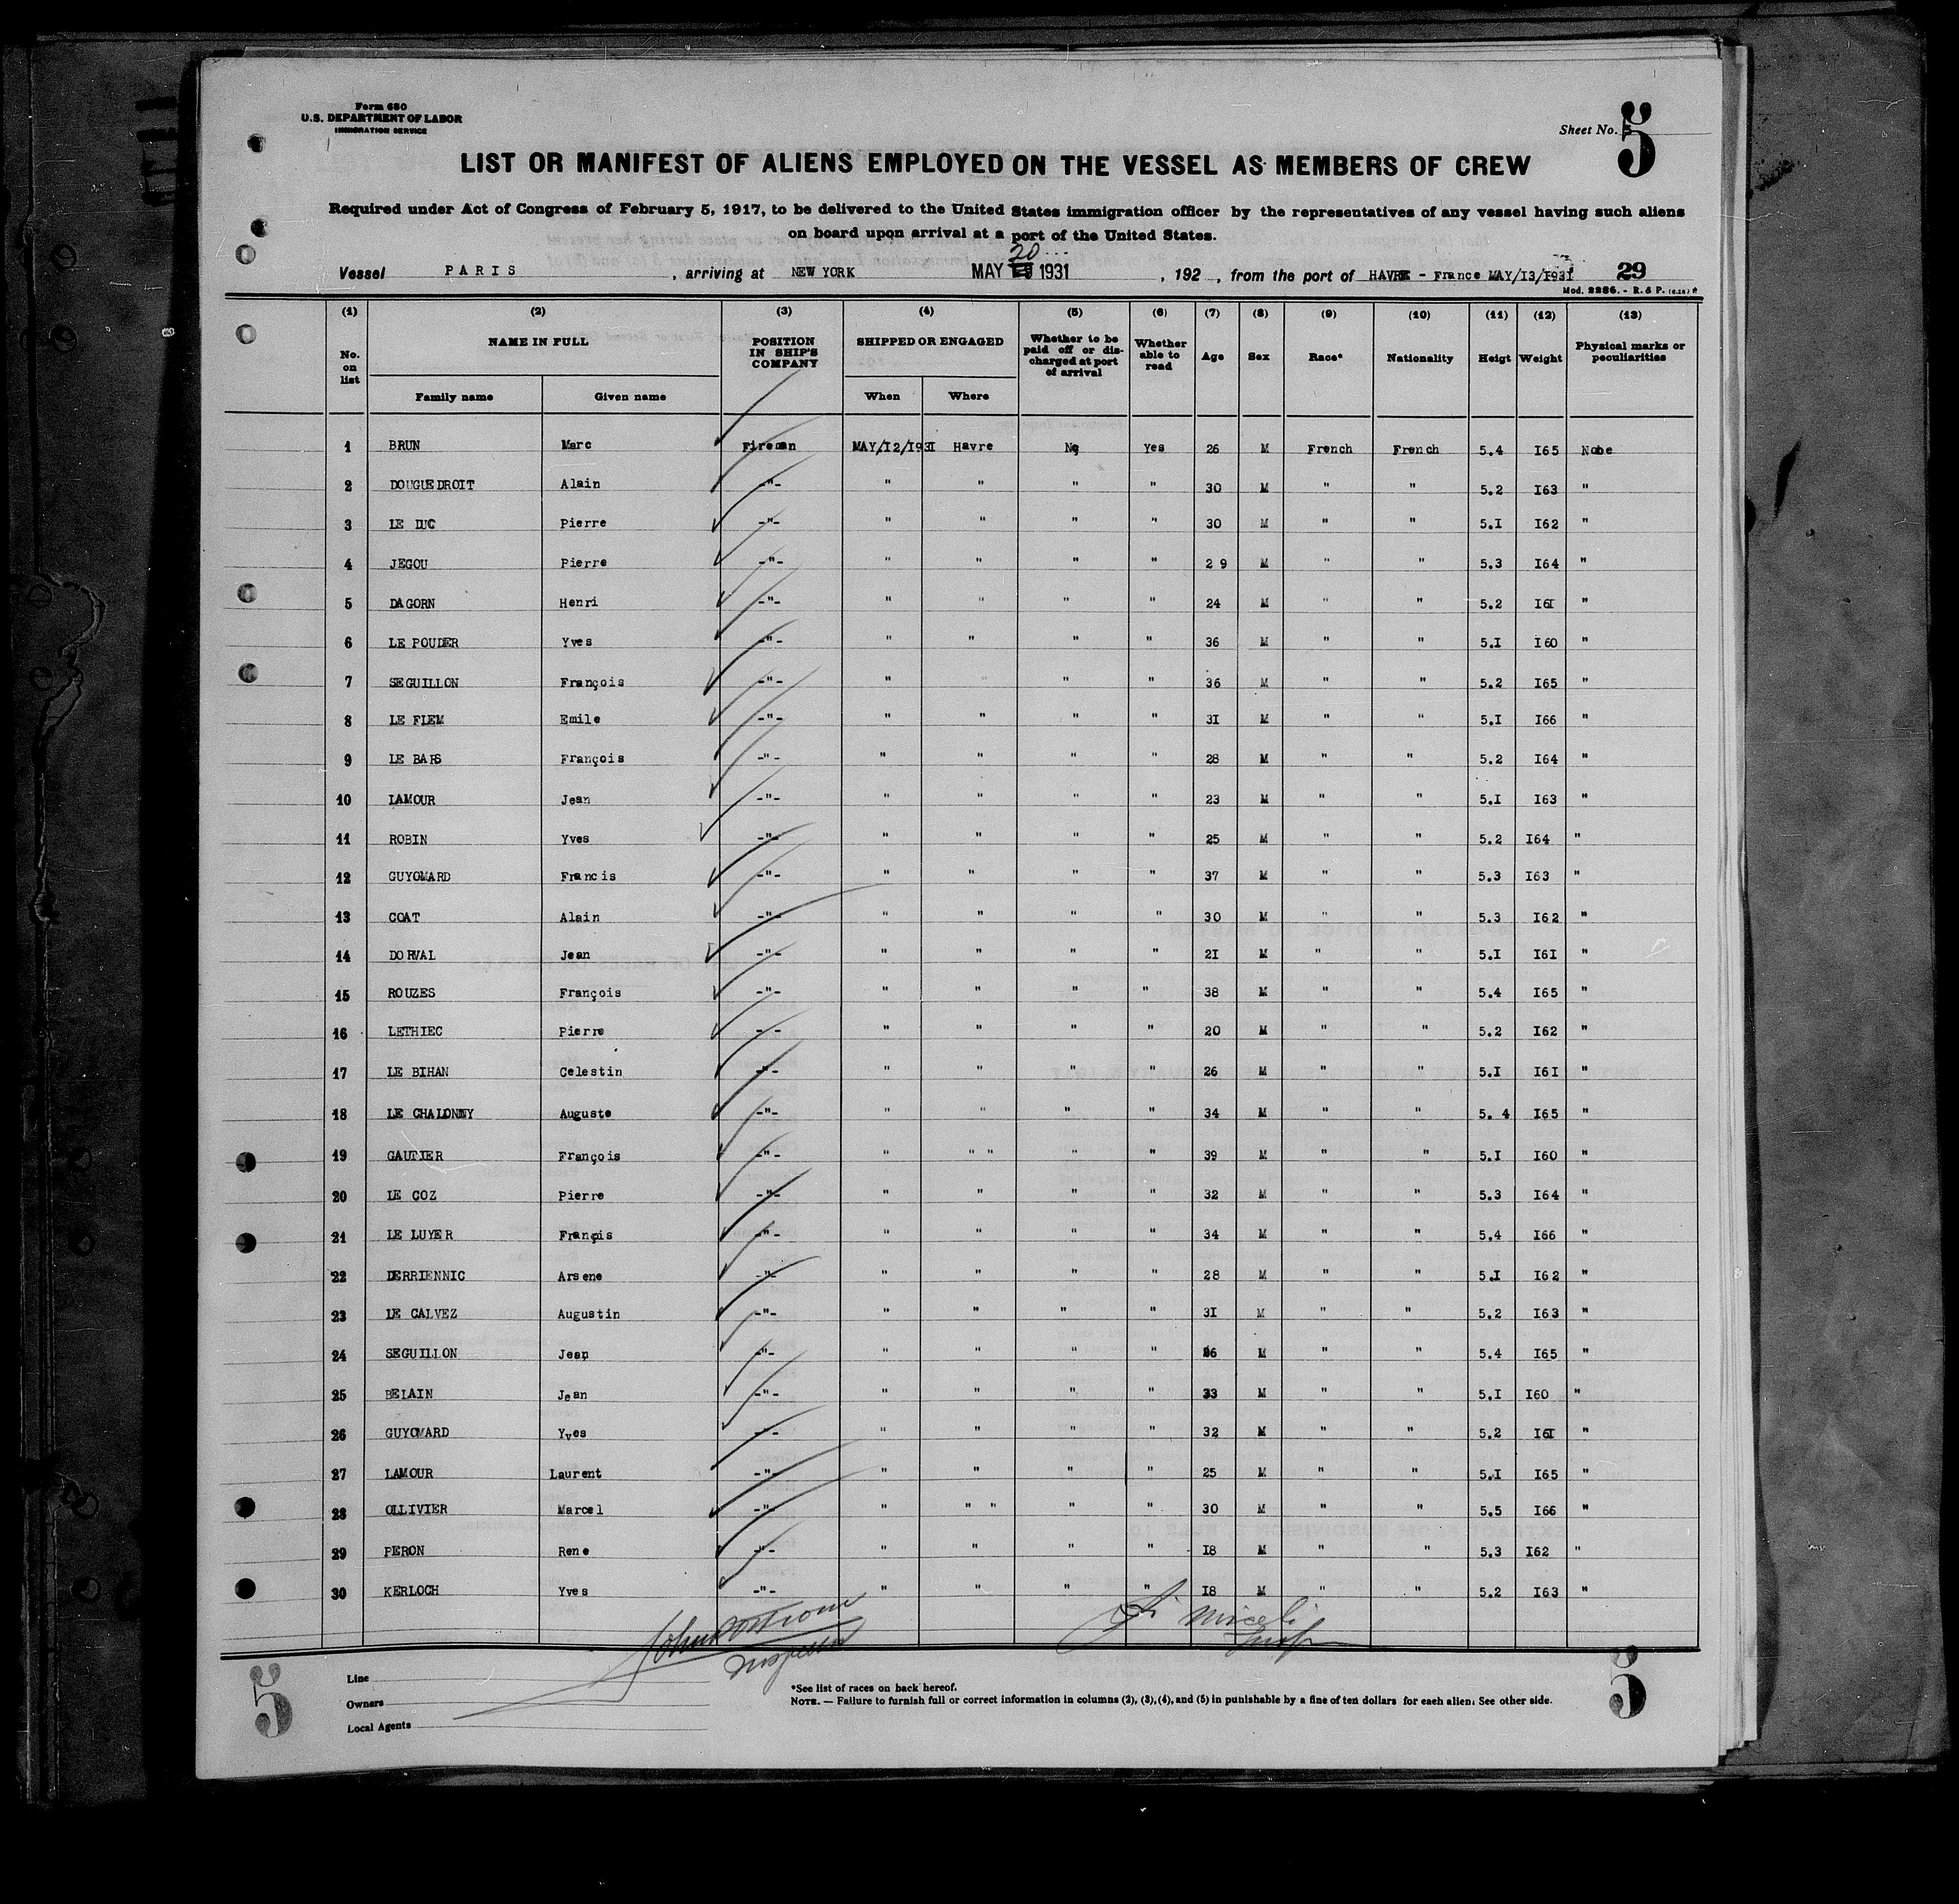 Form 680
U.S. DEPARTMENT OF LABOR
IMMIGRATION SERVICE
Sheet No. 5
LIST OR MANIFEST OF ALIENS EMPLOYED ON THE VESSEL AS MEMBERS OF CREW
Required under Act of Congress of February 5, 1917, to be delivered to the United States immigration officer by the representatives of any vessel having such aliens
on board upon arrival at a port of the United States.
20
Vessel PARIS , arriving at NEW YORK MAY 1931 , 192 , from the port of HAVRE - France MAY/I3/I93I 29
Mod. 2286. - R. & P.
(1) (2) (3) (4) (5) (6) (7) (8) (9) (10) (11) (12) (13)
No. on list NAME IN FULL POSITION IN SHIP'S COMPANY SHIPPED OR ENGAGED Whether to be paid off or dis-charged at port of arrival Whether able to read Age Sex Race* Nationality Heigt Weight Physical marks or peculiarities
Family name Given name When Where
1 BRUN Marc Fireman MAY/I2/I93I Havre No Yes 26 M French French 5.4 I65 None
2 DOUGUEDROIT Alain -"- " " " " 30 M " " 5.2 I63 "
3 LE DUC Pierre -"- " " " " 30 M " " 5.I I62 "
4 JEGOU Pierre -"- " " " " 29 M " " 5.3 I64 "
5 DAGORN Henri -"- " " " " 24 M " " 5.2 I6I "
6 LE POUDER Yves -"- " " " " 36 M " " 5.I I60 "
7 SEGUILLON François -"- " " " " 36 M " " 5.2 I65 "
8 LE FLEM Emile -"- " " " " 3I M " " 5.I I66 "
9 LE BARS François -"- " " " " 28 M " " 5.2 I64 "
10 LAMOUR Jean -"- " " " " 23 M " " 5.I I63 "
11 ROBIN Yves -"- " " " " 25 M " " 5.2 I64 "
12 GUYOMARD Francis -"- " " " " 37 M " " 5.3 I63 "
13 COAT Alain -"- " " " " 30 M " " 5.3 I62 "
14 DORVAL Jean -"- " " " " 2I M " " 5.I I6I "
15 ROUZES François -"- " " " " 38 M " " 5.4 I65 "
16 LETHIEC Pierre - - " " " " 20 M " " 5.2 I62 "
17 LE BIHAN Celestin -"- " " " " 26 M " " 5.I I6I "
18 LE CHALONNY Auguste -"- " " " " 34 M " " 5. 4 I65 "
19 GAUTIER François -"- " " " " " 39 M " " 5.I I60 "
20 LE COZ Pierre -"- " " " " 32 M " " 5.3 I64 "
21 LE LUYER Françis -"- " " " " 34 M " " 5.4 I66 "
22 DERRIENNIC Arsene -"- " " " " 28 M " " 5.I I62 "
23 LE CALVEZ Augustin -"- " " " " 3I M " " 5.2 I63 "
24 SEGUILLON Jean -"- " " " " M " " 5.4 I65 "
25 BELAIN Jean -"- " " " " 33 M " " 5.I I60 "
26 GUYOMARD Yves -"- " " " " 32 M " " 5.2 I6I "
27 LAMOUR Laurent -"- " " " " 25 M " " 5.I I65 "
28 OLLIVIER Marcel -"- " " " " " 30 M " " 5.5 I66 "
29 PERON Rene -"- " " " " I8 M " " 5.3 I62 "
30 KERLOCH Yves -"- " " " " I8 M " " 5.2 I63 "
John
Inspector
Miceli
Insp
5 5
Line
Owners
Local Agents
*See list of races on back hereof.
NOTE. — Failure to furnish full or correct information in columns (2), (3), (4), and (5) in punishable by a fine of ten dollars for each alien. See other side.